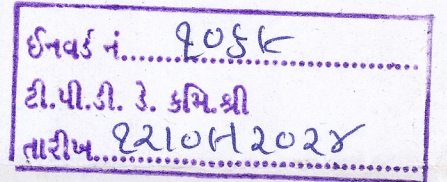 ઈનવર્ડ નં. ૧૦૬૯
ટી.પી.ડી. ડે. કમિ.શ્રી
તારીખ ૧૨/૦૯/૨૦૨૪